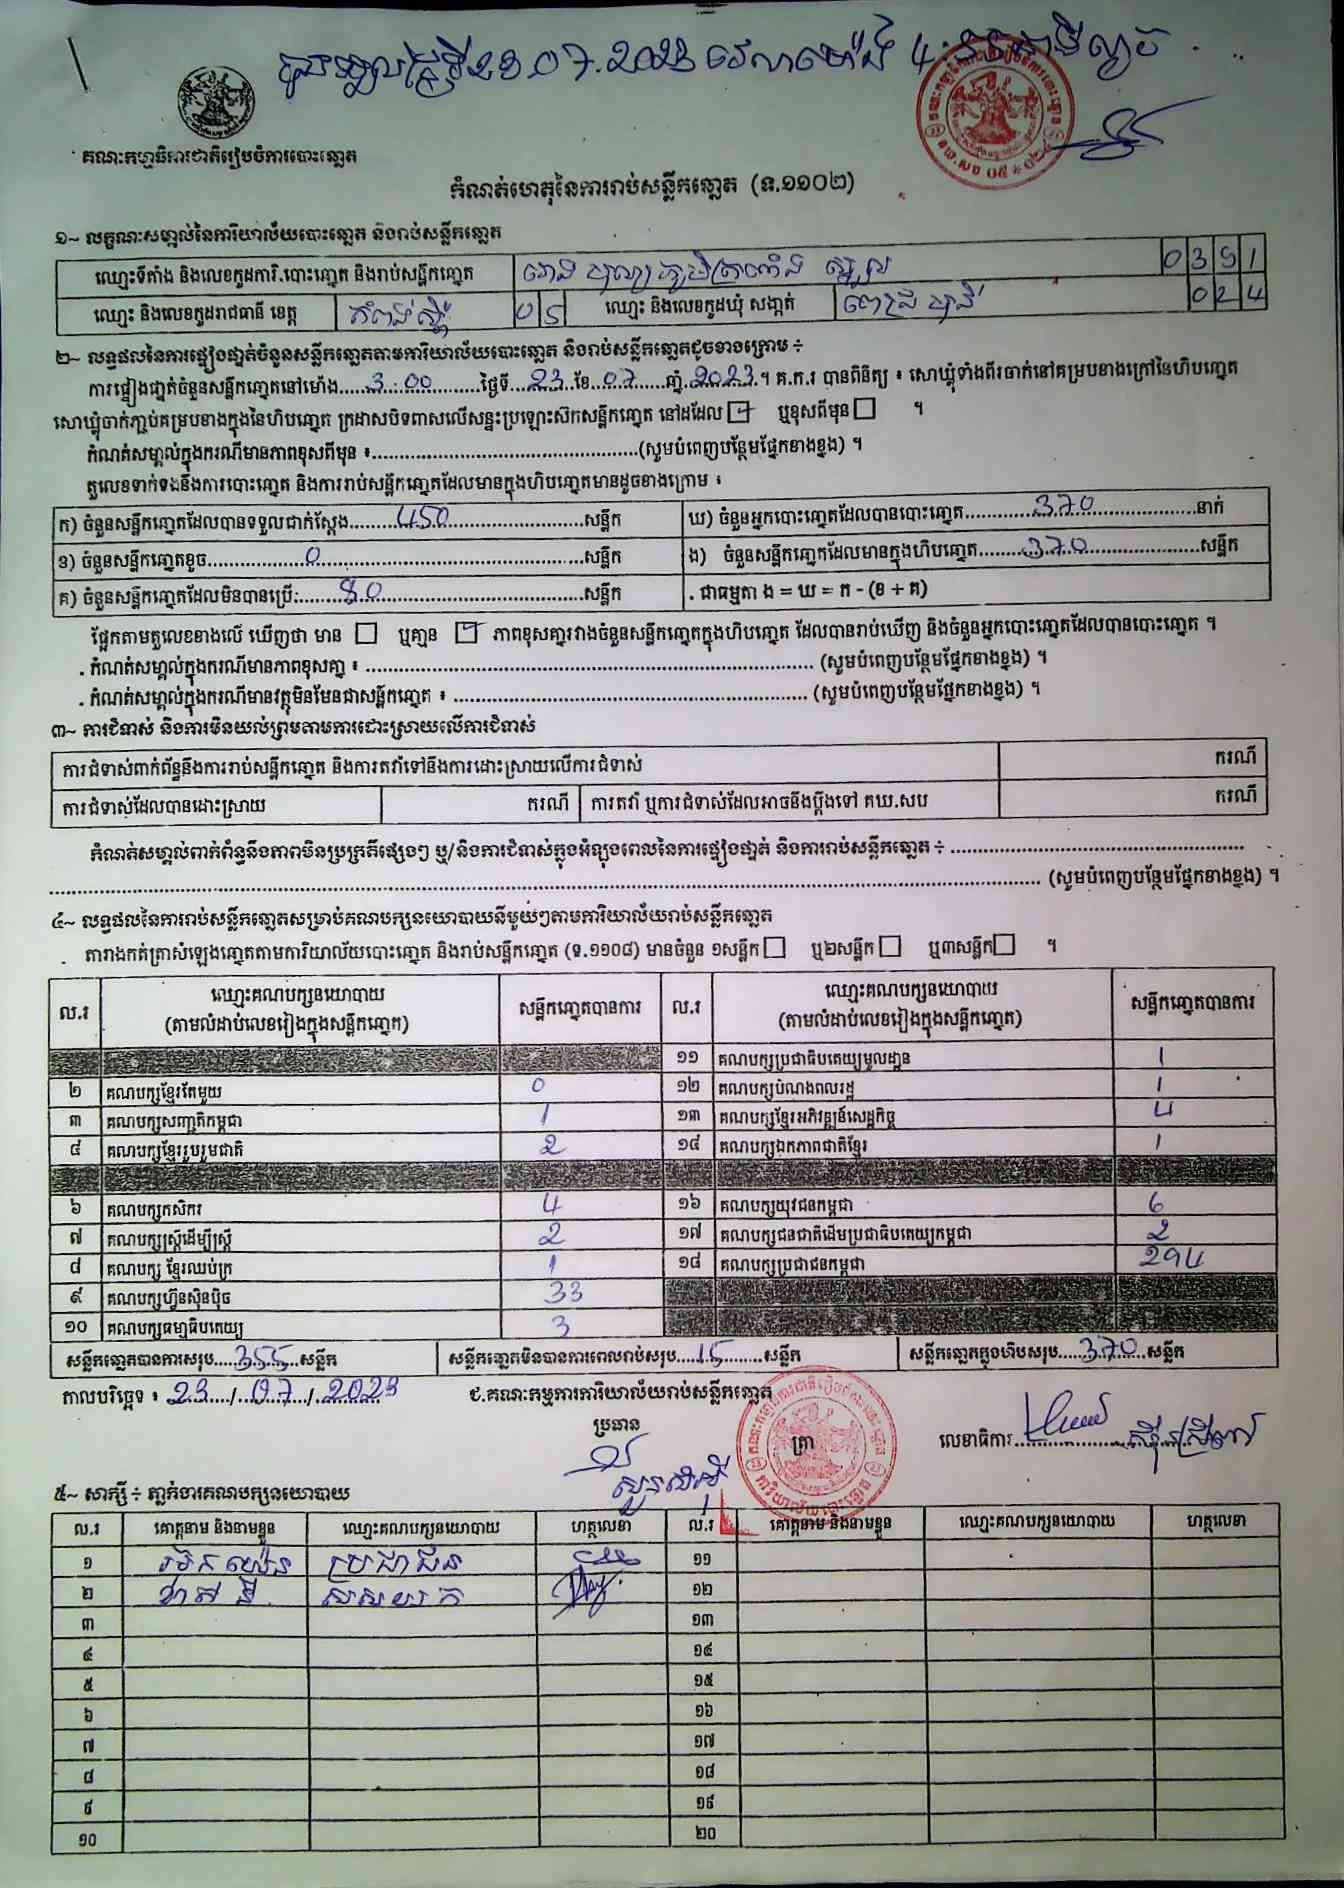 គណៈកម្មាធិការជាតិរៀបចំការបោះឆ្នោត
កំណត់ហេតុនៃការរាប់សន្លឹកឆ្នោត (ទ.១១០២)
១~ លក្ខណៈសម្គាល់នៃការិយាល័យបោះឆ្នោត និងរាប់សន្លឹកឆ្នោត
ឈ្មោះទីតាំង និងលេខកូដការិ.បោះឆ្នោត និងរាប់សន្លឹកឆ្នោត 0 3 9 1
ឈ្មោះ និងលេខកូដរាជធានី ខេត្ត កំពង់ស្ពឺ 0 5 ឈ្មោះ និងលេខកូដឃុំ សង្កាត់ 0 2 4
២~ លទ្ធផលនៃការផ្ទៀងផ្ទាត់ចំនួនសន្លឹកឆ្នោតតាមការិយាល័យបោះឆ្នោត និងរាប់សន្លឹកឆ្នោតដូចខាងក្រោម ÷
ការផ្ទៀងផ្ទាត់ចំនួនសន្លឹកឆ្នោតនៅម៉ោង 3:00 ថ្ងៃទី 23 ខែ 07 ឆ្នាំ 2023 ។ គ.ក.រ បានពិនិត្យ ៖ សោឃ្លុំទាំងពីរចាក់នៅគម្របខាងក្រៅនៃហិបឆ្នោត
សោឃ្លុំចាក់ភ្ជាប់គម្របខាងក្នុងនៃហិបឆ្នោត ក្រដាសបិទពាសលើសន្ទះប្រឡោះស៊កសន្លឹកឆ្នោត នៅដដែល ☑ ឬខុសពីមុន ☐ ។
កំណត់សម្គាល់ក្នុងករណីមានភាពខុសពីមុន ៖ (សូមបំពេញបន្ថែមផ្នែកខាងខ្នង) ។
តួលេខទាក់ទងនឹងការបោះឆ្នោត និងការរាប់សន្លឹកឆ្នោតដែលមានក្នុងហិបឆ្នោតមានដូចខាងក្រោម ៖
ក) ចំនួនសន្លឹកឆ្នោតដែលបានទទួលជាក់ស្តែង 450 សន្លឹក ឃ) ចំនួនអ្នកបោះឆ្នោតដែលបានបោះឆ្នោត 370 នាក់
ខ) ចំនួនសន្លឹកឆ្នោតខូច 0 សន្លឹក ង) ចំនួនសន្លឹកឆ្នោតដែលមានក្នុងហិបឆ្នោត 370 សន្លឹក
គ) ចំនួនសន្លឹកឆ្នោតដែលមិនបានប្រើ: 80 សន្លឹក . ជាធម្មតា ង = ឃ = ក - (ខ + គ)
ផ្អែកតាមតួលេខខាងលើ ឃើញថា មាន ☐ ឬគ្មាន ☑ ភាពខុសគ្នារវាងចំនួនសន្លឹកឆ្នោតក្នុងហិបឆ្នោត ដែលបានរាប់ឃើញ និងចំនួនអ្នកបោះឆ្នោតដែលបានបោះឆ្នោត ។
. កំណត់សម្គាល់ក្នុងករណីមានភាពខុសគ្នា ៖ (សូមបំពេញបន្ថែមផ្នែកខាងខ្នង) ។
. កំណត់សម្គាល់ក្នុងករណីមានវត្ថុមិនមែនជាសន្លឹកឆ្នោត ៖ (សូមបំពេញបន្ថែមផ្នែកខាងខ្នង) ។
៣~ ការជំទាស់ និងការមិនយល់ព្រមតាមការដោះស្រាយលើការជំទាស់
ការជំទាស់ពាក់ព័ន្ធនឹងការរាប់សន្លឹកឆ្នោត និងការតវ៉ាទៅនឹងការដោះស្រាយលើការជំទាស់ ករណី
ការជំទាស់ដែលបានដោះស្រាយ ករណី ការតវ៉ា ឬការជំទាស់ដែលអាចនឹងប្តឹងទៅ គឃ.សប ករណី
កំណត់សម្គាល់ពាក់ព័ន្ធនឹងភាពមិនប្រក្រតីផ្សេងៗ ឬ/និងការជំទាស់ក្នុងអំឡុងពេលនៃការផ្ទៀងផ្ទាត់ និងការរាប់សន្លឹកឆ្នោត ÷
(សូមបំពេញបន្ថែមផ្នែកខាងខ្នង) ។
៤~ លទ្ធផលនៃការរាប់សន្លឹកឆ្នោតសម្រាប់គណបក្សនយោបាយនីមួយៗតាមការិយាល័យរាប់សន្លឹកឆ្នោត
តារាងកត់ត្រាសំឡេងឆ្នោតតាមការិយាល័យបោះឆ្នោត និងរាប់សន្លឹកឆ្នោត (ទ.១១០៨) មានចំនួន ១សន្លឹក ☐ ឬ២សន្លឹក ☐ ឬ៣សន្លឹក ☐ ។
ល.រ ឈ្មោះគណបក្សនយោបាយ (តាមលំដាប់លេខរៀងក្នុងសន្លឹកឆ្នោត) សន្លឹកឆ្នោតបានការ ល.រ ឈ្មោះគណបក្សនយោបាយ (តាមលំដាប់លេខរៀងក្នុងសន្លឹកឆ្នោត) សន្លឹកឆ្នោតបានការ
១១ គណបក្សប្រជាធិបតេយ្យមូលដ្ឋាន 1
២ គណបក្សខ្មែរតែមួយ 0 ១២ គណបក្សបំណងពលរដ្ឋ 1
៣ គណបក្សសញ្ជាតិកម្ពុជា 1 ១៣ គណបក្សខ្មែរអភិវឌ្ឍន៍សេដ្ឋកិច្ច 4
៤ គណបក្សខ្មែររួបរួមជាតិ 2 ១៤ គណបក្សឯកភាពជាតិខ្មែរ 1
៦ គណបក្សកសិករ 4 ១៦ គណបក្សយុវជនកម្ពុជា 6
៧ គណបក្សស្រ្តីដើម្បីស្រ្តី 2 ១៧ គណបក្សជនជាតិដើមប្រជាធិបតេយ្យកម្ពុជា 2
៨ គណបក្ស ខ្មែរឈប់ក្រ 1 ១៨ គណបក្សប្រជាជនកម្ពុជា 294
៩ គណបក្សហ៊្វុនស៊ិនប៉ិច 33
១០ គណបក្សធម្មាធិបតេយ្យ 3
សន្លឹកឆ្នោតបានការសរុប 355 សន្លឹក សន្លឹកឆ្នោតមិនបានការពេលរាប់សរុប 15 សន្លឹក សន្លឹកឆ្នោតក្នុងហិបសរុប 370 សន្លឹក
កាលបរិច្ឆេទ ៖ 23/07/2023 ៥.គណៈកម្មការការិយាល័យរាប់សន្លឹកឆ្នោត
ប្រធាន ត្រា លេខាធិការ
៥~ សាក្សី ÷ ភ្នាក់ងារគណបក្សនយោបាយ
ល.រ គោត្តនាម និងនាមខ្លួន ឈ្មោះគណបក្សនយោបាយ ហត្ថលេខា ល.រ គោត្តនាម និងនាមខ្លួន ឈ្មោះគណបក្សនយោបាយ ហត្ថលេខា
១ ប្រជាជន ១១
២ ១២
៣ ១៣
៤ ១៤
៥ ១៥
៦ ១៦
៧ ១៧
៨ ១៨
៩ ១៩
១០ ២០